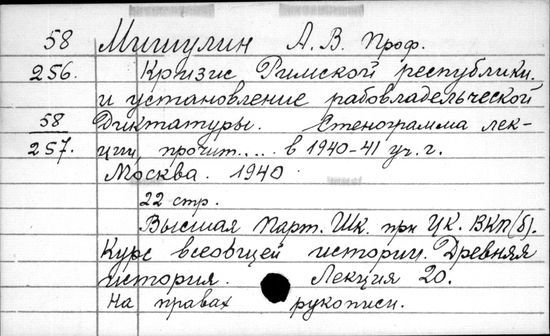 58 Мишулин А. В. Проф.
256. Кризис Римской республики
и установление рабовладельческой
58 Диктатуры. Стенограмма лек-
257. ции, прочит.... в 1940-41 уч. г.
Москва. 1940.
22 стр.
Высшая Парт. Шк. при ЦК. ВКП(б).
Курс всеобщей истории. Древняя
история. Лекция 20.
На правах рукописи.